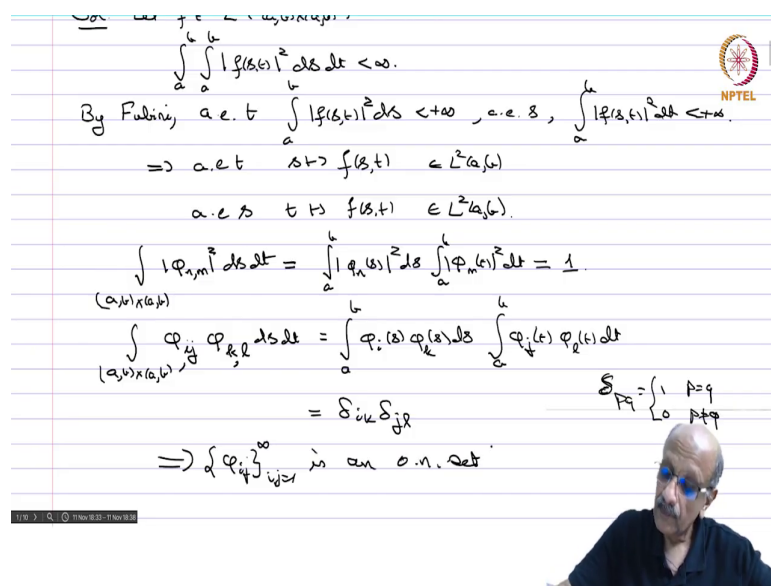 Sol. Let f ∈ L²((a,b)×(a,b)).
∫_a^b ∫_a^b |f(s,t)|² ds dt < ∞.
NPTEL
By Fubini, a.e. t ∫_a^b |f(s,t)|² ds < +∞, a.e. s, ∫_a^b |f(s,t)|² dt < +∞.
⇒ a.e t s ↦ f(s,t) ∈ L²(a,b)
a.e s t ↦ f(s,t) ∈ L²(a,b).
∫_{(a,b)×(a,b)} |φ_{n,m}|² ds dt = ∫_a^b |φ_n(s)|² ds ∫_a^b |φ_m(t)|² dt = 1.
∫_{(a,b)×(a,b)} φ_{ij} φ_{k,l} ds dt = ∫_a^b φ_i(s) φ_k(s) ds ∫_a^b φ_j(t) φ_l(t) dt
= δ_{ik} δ_{jl}
δ_{pq} = { 1 p=q
0 p≠q
⇒ {φ_{ij}}^∞_{i,j=1} is an o.n. set
1/10 11 Nov 18:33 – 11 Nov 18:38